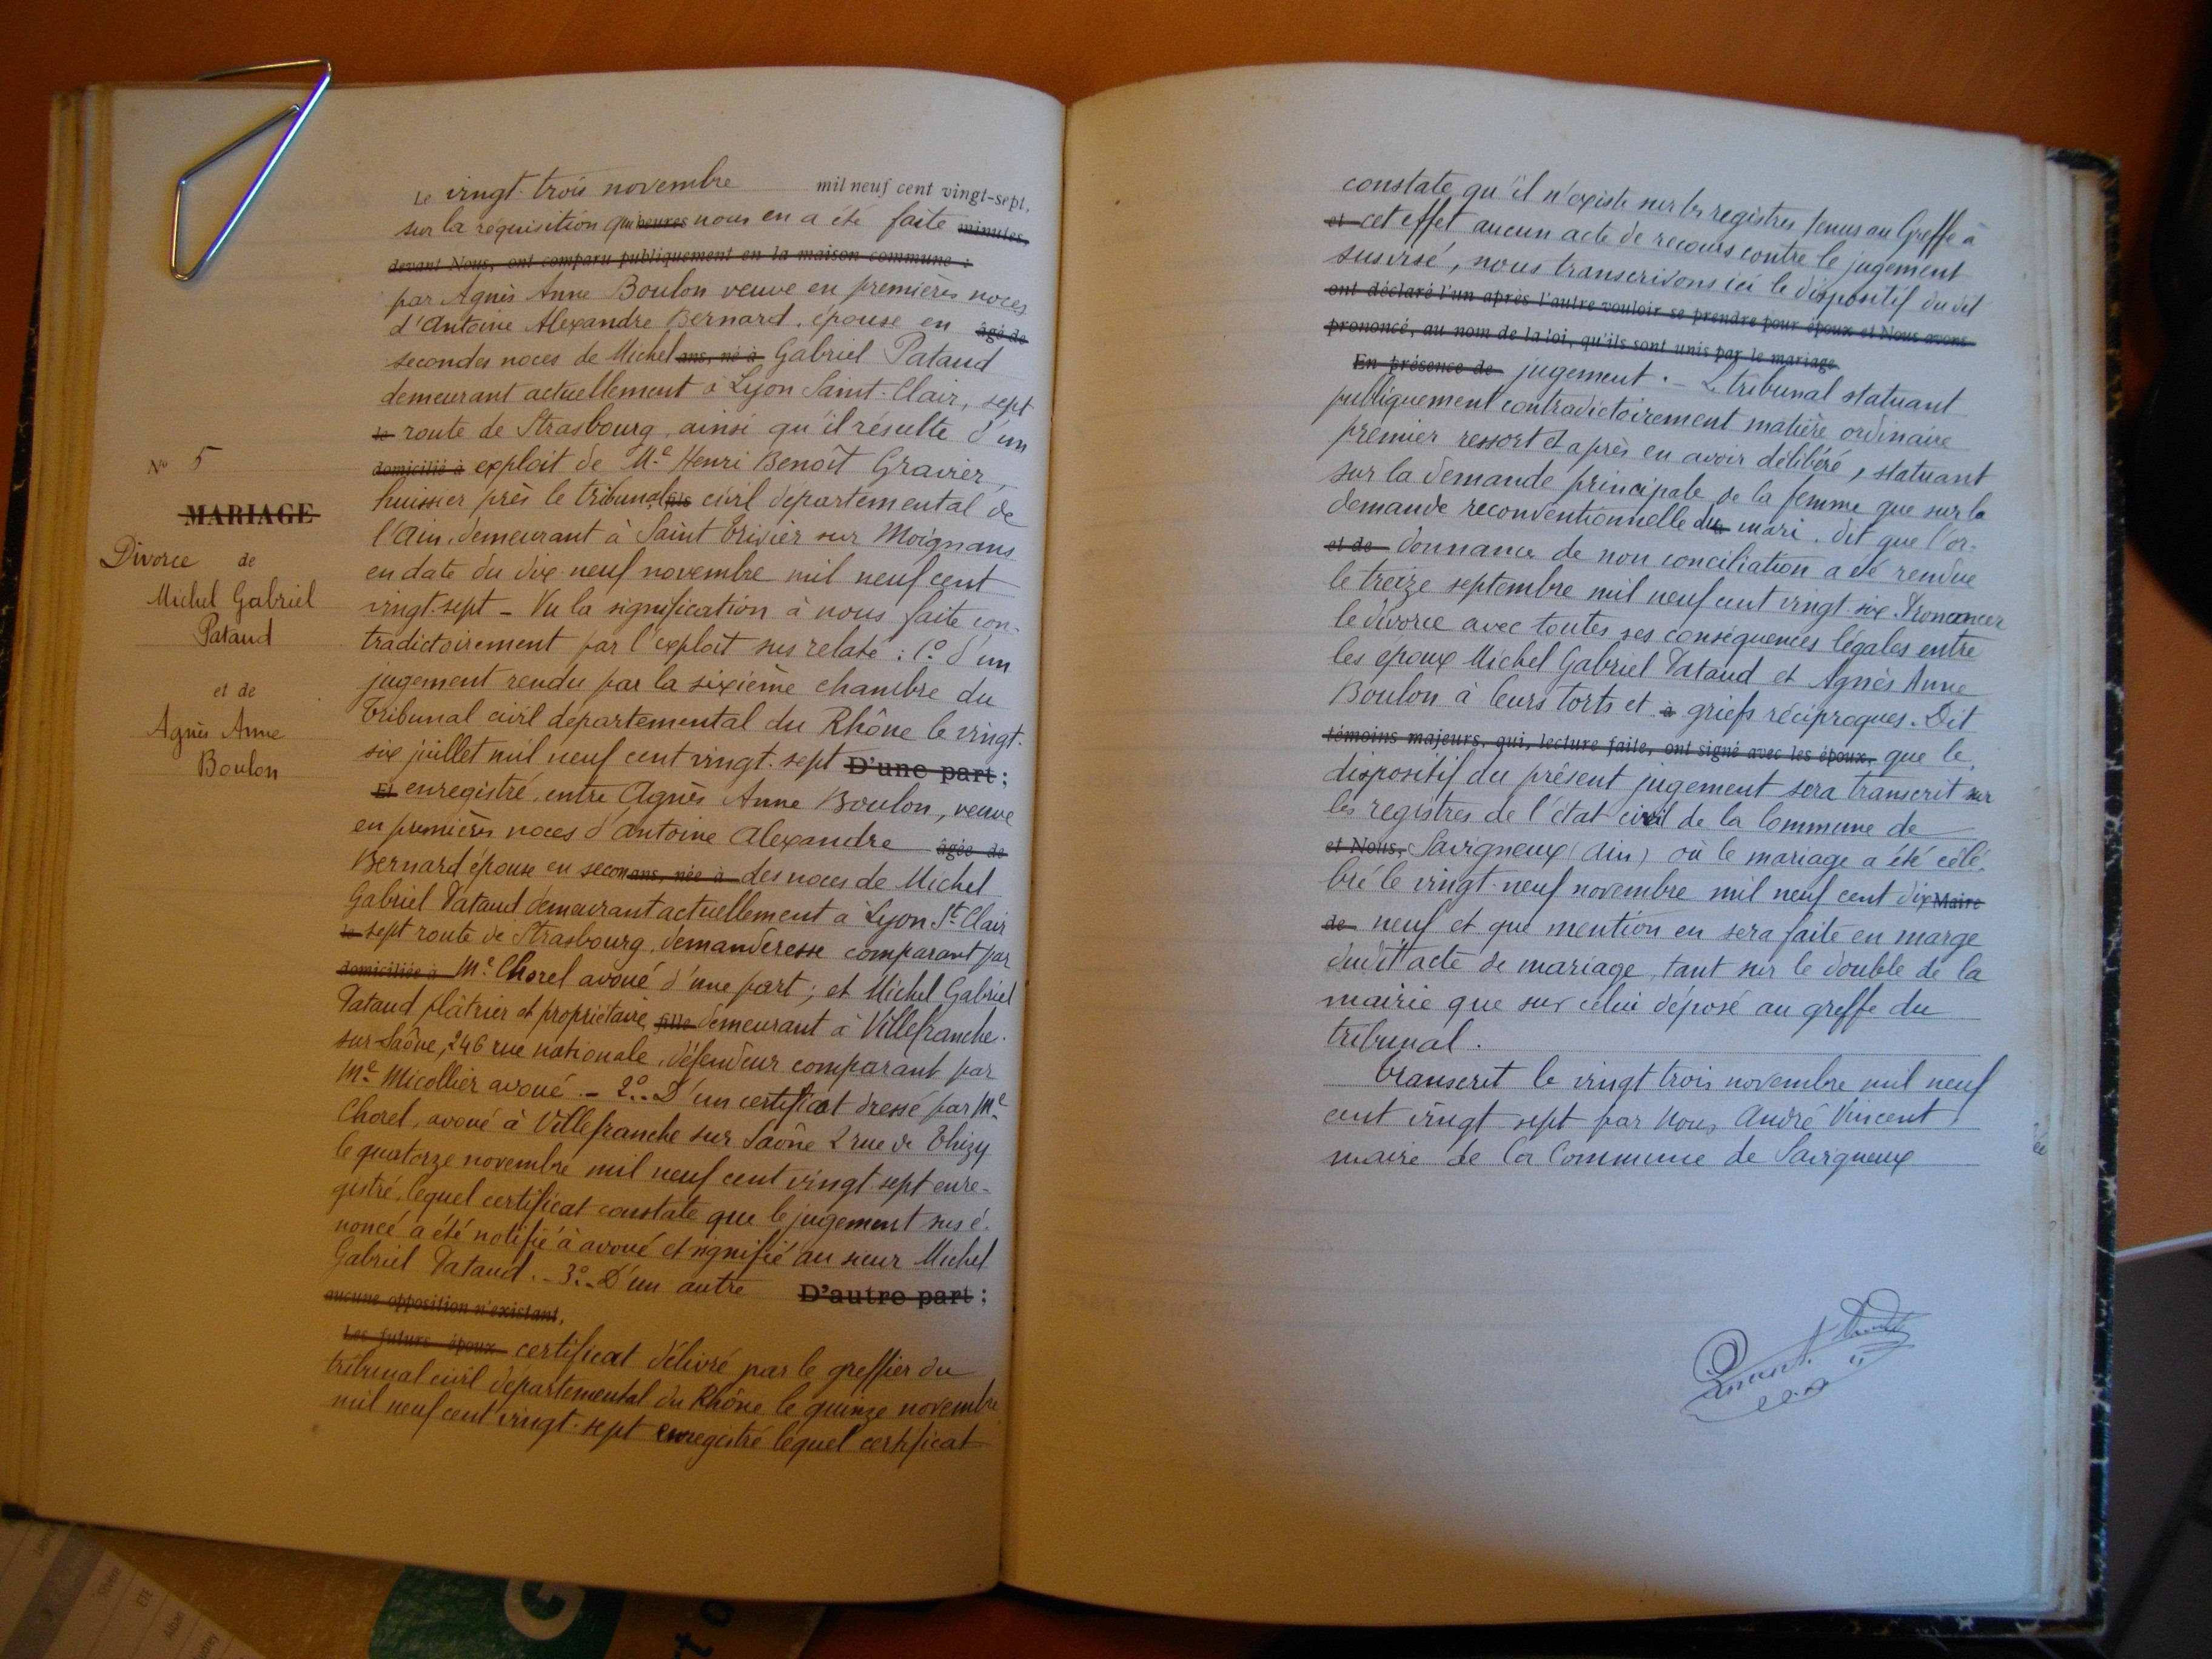 N° 5
MARIAGE
Divorce de
Michel Gabriel
Pataud
et de
Agnès Anne
Boulon
Le vingt-trois novembre mil neuf cent vingt-sept,
sur la réquisition qui heures nous en a été faite minutes,
devant Nous, ont comparu publiquement en la maison commune :
par Agnès Anne Boulon veuve en premières noces
d'Antoine Alexandre Bernard, épouse en âgé de
secondes noces de Michel ans, né à Gabriel Pataud
demeurant actuellement à Lyon Saint-Clair, sept
le route de Strasbourg, ainsi qu'il résulte d'un
domicilié à exploit de Me Henri Benoît Gravier,
huissier près le tribunal fils civil départemental de
l'Ain, demeurant à Saint Trivier sur Moignans
en date du dix-neuf novembre mil neuf cent
vingt-sept - Vu la signification à nous faite con-
tradictoirement par l'exploit sus relaté : 1° d'un
jugement rendu par la sixième chambre du
Tribunal civil départemental du Rhône le vingt-
six juillet mil neuf cent vingt-sept D'une part ;
Et enregistré, entre Agnès Anne Boulon, veuve
en premières noces d'Antoine Alexandre âgée de
Bernard épouse en secon ans, née à des noces de Michel
Gabriel Pataud demeurant actuellement à Lyon St Clair
le sept route de Strasbourg, demanderesse comparant par
domiciliée à Me Chorel avoué d'une part ; et Michel Gabriel
Pataud plâtrier et propriétaire, fille demeurant à Villefranche-
sur-Saône, 246 rue nationale, défendeur comparant par
Me Micollier avoué. - 2°- D'un certificat dressé par Me
Chorel, avoué à Villefranche sur Saône 2 rue de Thizy
le quatorze novembre mil neuf cent vingt-sept enre-
gistré, lequel certificat constate que le jugement sus é-
noncé a été notifié à avoué et signifié au sieur Michel
Gabriel Pataud. - 3°- D'un autre D'autre part ;
aucune opposition n'existant,
Les futurs époux certificat délivré par le greffier du
tribunal civil départemental du Rhône le quinze novembre
mil neuf cent vingt-sept enregistré lequel certificat
constate qu'il n'existe sur les registres tenus au Greffe à
et cet effet aucun acte de recours contre le jugement
susvisé, nous transcrivons ici le dispositif du dit
ont déclaré l'un après l'autre vouloir se prendre pour époux et Nous avons
prononcé, au nom de la loi, qu'ils sont unis par le mariage
En présence de jugement. - Le tribunal statuant
publiquement contradictoirement matière ordinaire
premier ressort et après en avoir délibéré, statuant
sur la demande principale de la femme que sur la
demande reconventionnelle du mari. Dit que l'or-
et de donnance de non conciliation a été rendue
le treize septembre mil neuf cent vingt-six. Prononcer
le divorce avec toutes ses conséquences légales entre
les époux Michel Gabriel Pataud et Agnès Anne
Boulon à leurs torts et à griefs réciproques. Dit
témoins majeurs, qui, lecture faite, ont signé avec les époux, que le
dispositif du présent jugement sera transcrit sur
les registres de l'état civil de la Commune de
et Nous, Savigneux (Ain) où le mariage a été célé-
bré le vingt-neuf novembre mil neuf cent dix Maire
de neuf et que mention en sera faite en marge
dudit acte de mariage, tant sur le double de la
mairie que sur celui déposé au greffe du
tribunal.
Transcrit le vingt trois novembre mil neuf
cent vingt sept par Nous, André Vincent,
maire de la Commune de Savigneux